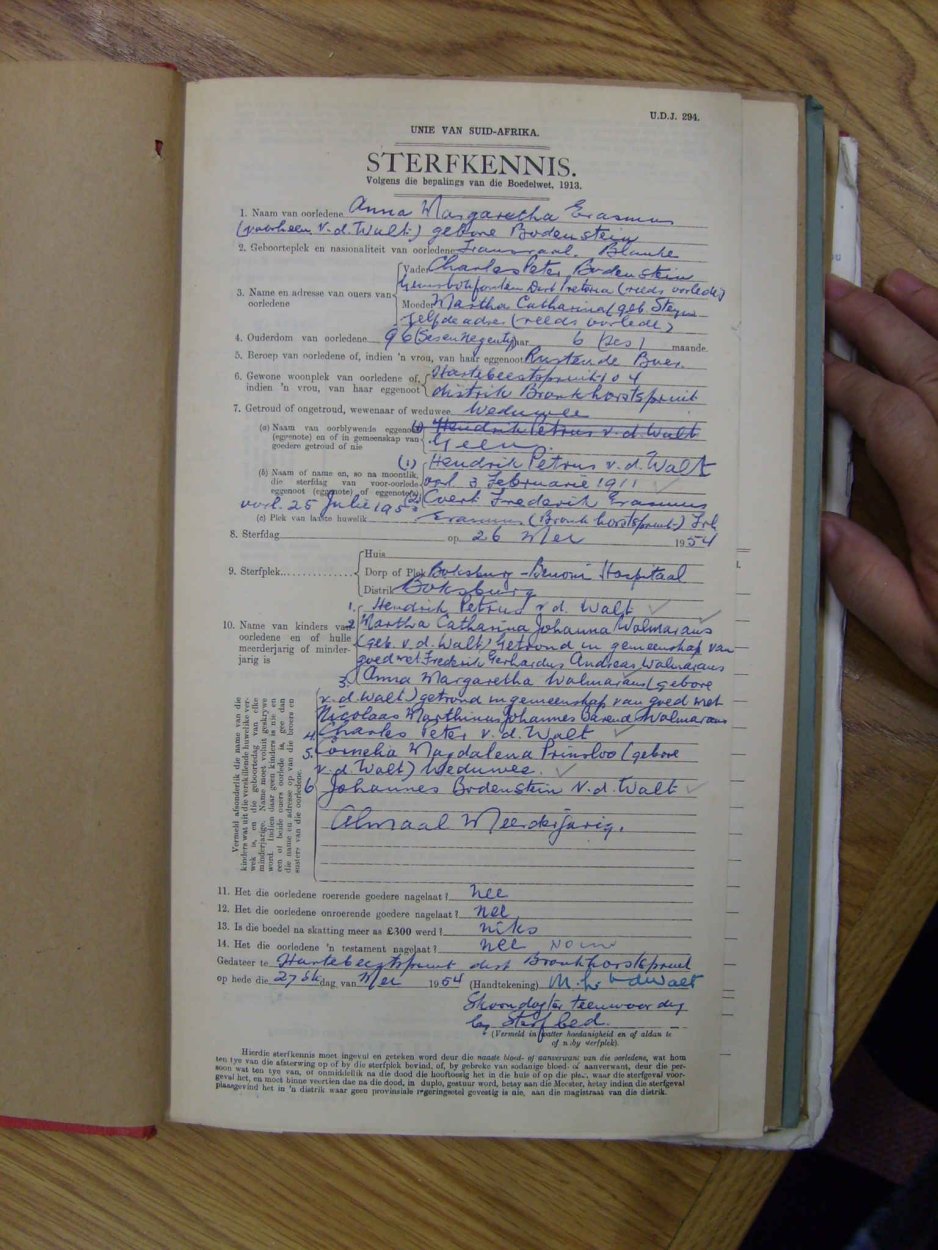 U.D.J. 294.
UNIE VAN SUID-AFRIKA.
STERFKENNIS.
Volgens die bepalings van die Boedelwet, 1913.
1. Naam van oorledene Anna Margaretha Erasmus
(voorheen v.d. Walt) gebore Bodenstein
2. Geboorteplek en nasionaliteit van oorledene Transvaal. Blanke
3. Name en adresse van ouers van oorledene
Vader Charles Peter Bodenstein
Dist Pretoria (reeds oorlede)
Moeder Martha Catharina (geb. Steyn
Selfde adres (reeds oorlede)
4. Ouderdom van oorledene 96 (Sesennegentig) jaar 6 (ses) maande
5. Beroep van oorledene of, indien 'n vrou, van haar eggenoot Rustende Boer
6. Gewone woonplek van oorledene of, indien 'n vrou, van haar eggenoot
Hartebeestspruit 104
distrik Bronkhorstspruit
7. Getroud of ongetroud, wewenaar of weduwee Weduwee
(a) Naam van oorblywende eggenoot (eggenote) en of in gemeenskap van goedere getroud of nie
Hendrik Petrus v.d. Walt
Geen
(b) Naam of name en, so na moontlik, die sterfdag van voor-oorlede eggenoot (eggenote) of eggenote(s)
(1) Hendrik Petrus v.d. Walt
oorl 3 Februarie 1911
(2) Evert Frederik Erasmus
oorl. 25 Julie 195
(c) Plek van laaste huwelik Erasmus (Bronkhorstspruit)
8. Sterfdag op 26 Mei 1954
9. Sterfplek
Huis
Dorp of Plek Boksburg-Benoni Hospitaal
Distrik Boksburg
10. Name van kinders van oorledene en of hulle meerderjarig of minderjarig is
1. Hendrik Petrus v.d. Walt
2. Martha Catharina Johanna Wolmarans
(geb. v.d. Walt) getroud in gemeenskap van
goed met Frederik Gerhardus Andreas Wolmarans
3. Anna Margaretha Wolmarans (gebore
v.d. Walt) getroud in gemeenskap van goed met
Nicolaas Marthinus Johannes Barend Wolmarans
4. Charles Peter v.d. Walt
5. Cornelia Magdalena Prinsloo (gebore
v.d. Walt) Weduwee.
6 Johannes Bodenstein v.d. Walt
Almaal Meerderjarig.
Vermeld afsonderlik die name van die
kinders wat uit die verskillende huwelike ver-
wek is, en die geboortedag van elke
minderjarige. Name moet voluit geskrywe
word. Indien daar geen kinders is nie en
een of beide ouers oorlede is, gee dan
die name en adresse op van die broers en
susters van die oorledene.
11. Het die oorledene roerende goedere nagelaat? nee
12. Het die oorledene onroerende goedere nagelaat? nee
13. Is die boedel na skatting meer as £300 werd? niks
14. Het die oorledene 'n testament nagelaat? nee
Gedateer te Hartebeestspruit dist Bronkhorstspruit
op hede die 27ste dag van Mei 1954 (Handtekening)
Skoondogter teenwoordig
by Sterfbed.
(Vermeld in watter hoedanigheid en of aldan te of n.by sterfplek).
Hierdie sterfkennis moet ingevul en geteken word deur die naaste bloed- of aanverwant van die oorledene, wat hom
ten tye van die afsterwing op of by die sterfplek bevind, of, by gebreke van sodanige bloed- of aanverwant, deur die per-
soon wat ten tye van, of onmiddellik na die dood die hooftoesig het in die huis of op die plek, waar die sterfgeval voor-
geval het, en moet binne veertien dae na die dood, in duplo, gestuur word, hetsy aan die Meester, hetsy indien die sterfgeval
plaasgevind het in 'n distrik waar geen provinsiale regeringsetel gevestig is nie, aan die magistraat van die distrik.